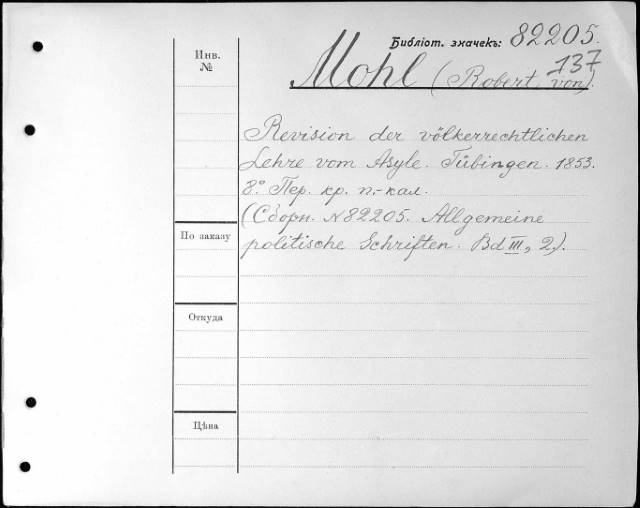 Библіот. значекъ: 82205.
137
Инв.
№
Mohl (Robert von).
Revision der völkerrechtlichen
Lehre vom Asyle. Tübingen. 1853.
8° Пер. кр. п.-кал.
(Сборн. N 82205. Allgemeine
По заказу
politische Schriften. Bd III, 2.).
Откуда
Цѣна